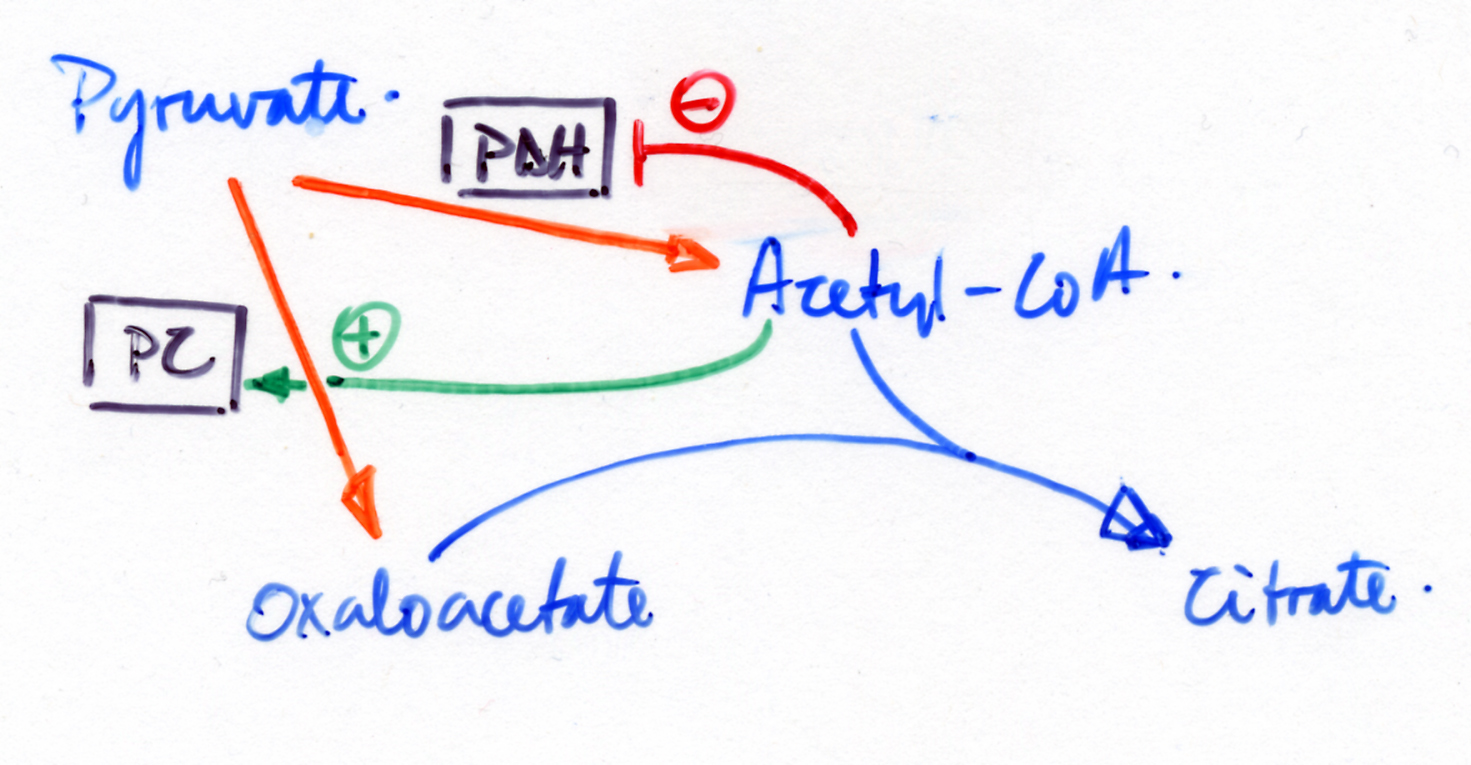 Pyruvate.
PDH
⊖
Acetyl-CoA.
PC
⊕
Oxaloacetate
Citrate.